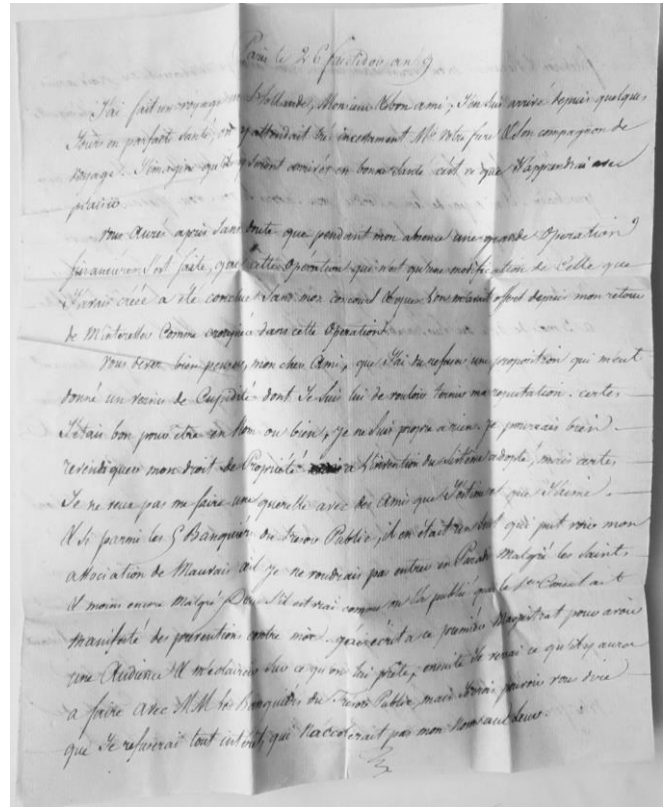 Paris le 26 fructidor an 9
J'ai fait un voyage en Hollande, Monsieur & bon ami; J'en suis arrivé depuis quelques
Jours en parfaite santé, on y attendait incessament Mr votre frere & son compagnon de
voyage. J'imagine qu'ils y seront arrivés en bonne santé c'est ce que J'apprendrai avec
plaisir
vous aurés apris sans doute que pendant mon absence une grande Operation
financiere s'est faite, que cette Opération qui n'est qu'une modification de Celle que
J'avais créée a été conclue sans mon concours & que l'on m'avait offert depuis mon retour
de M'interesser Comme croupier dans cette Operation
Vous devez bien penser, mon cher Ami, que J'ai du refuser une proposition qui m'eut
donné un vernis de Cupidité dont Je suis loin de vouloir ternir ma reputation. certes
J'étais bon pour être en Nom ou bien, Je ne suis propre a rien. Je pourrais bien
revendiquer mon droit de Propriété a L'invention du sistême adopté, mais certes
Je ne veux pas me faire une querelle avec des Amis que J'estime & que J'aime.
& Si parmi les 5 Banquiers du Trésor Public, il en était un seul qui put voir mon
association de Mauvais œil je ne voudrais pas entrer en Paradis Malgré les Saints
& moins encore Malgré Dieu s'il est vrai comme on l'a publié que le 1er Consul ait
manifesté des préventions contre moi. j'ai écrit a ce premier Magistrat pour avoir
une Audience & m'éclaircir sur ce qu'on lui prête, ensuite Je verrai ce qu'il y aura
a faire avec MM. les Banquiers du Trésor Public, mais Je crois pouvoir vous dire
que Je refuserai tout intérêt qui n'accolerait pas mon Nom au leur.